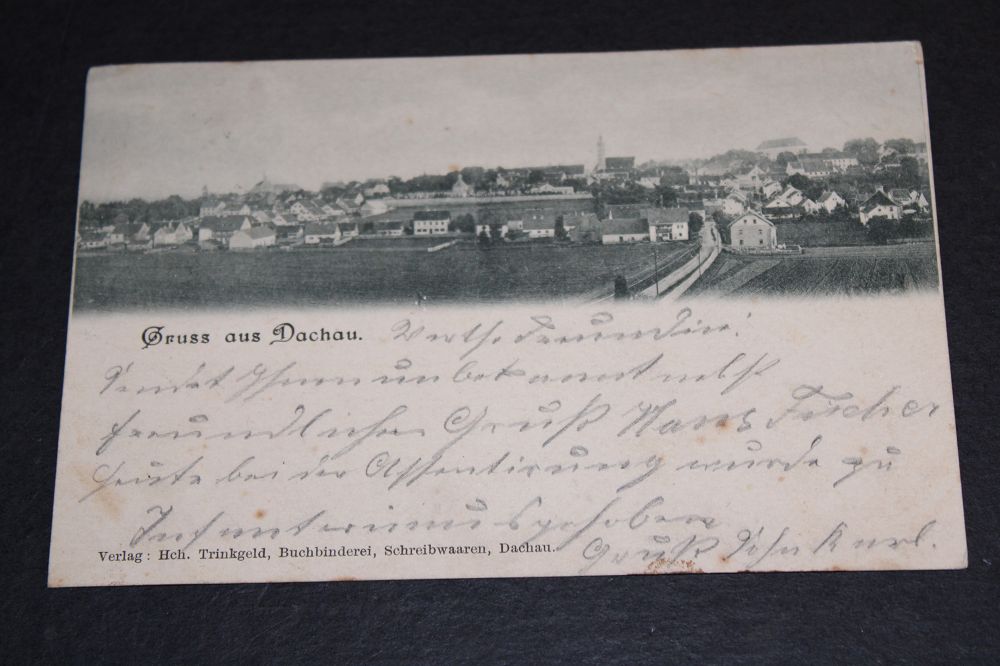 Gruss aus Dachau. Werthe Freundin!
Sendet Ihnen unbekannt nebst
freundlicher Gruß Hans Fischer
heute bei der Assentirung wurde zu
Infanterie
Verlag: Hch. Trinkgeld, Buchbinderei, Schreibwaaren, Dachau.
Gruß Karl.